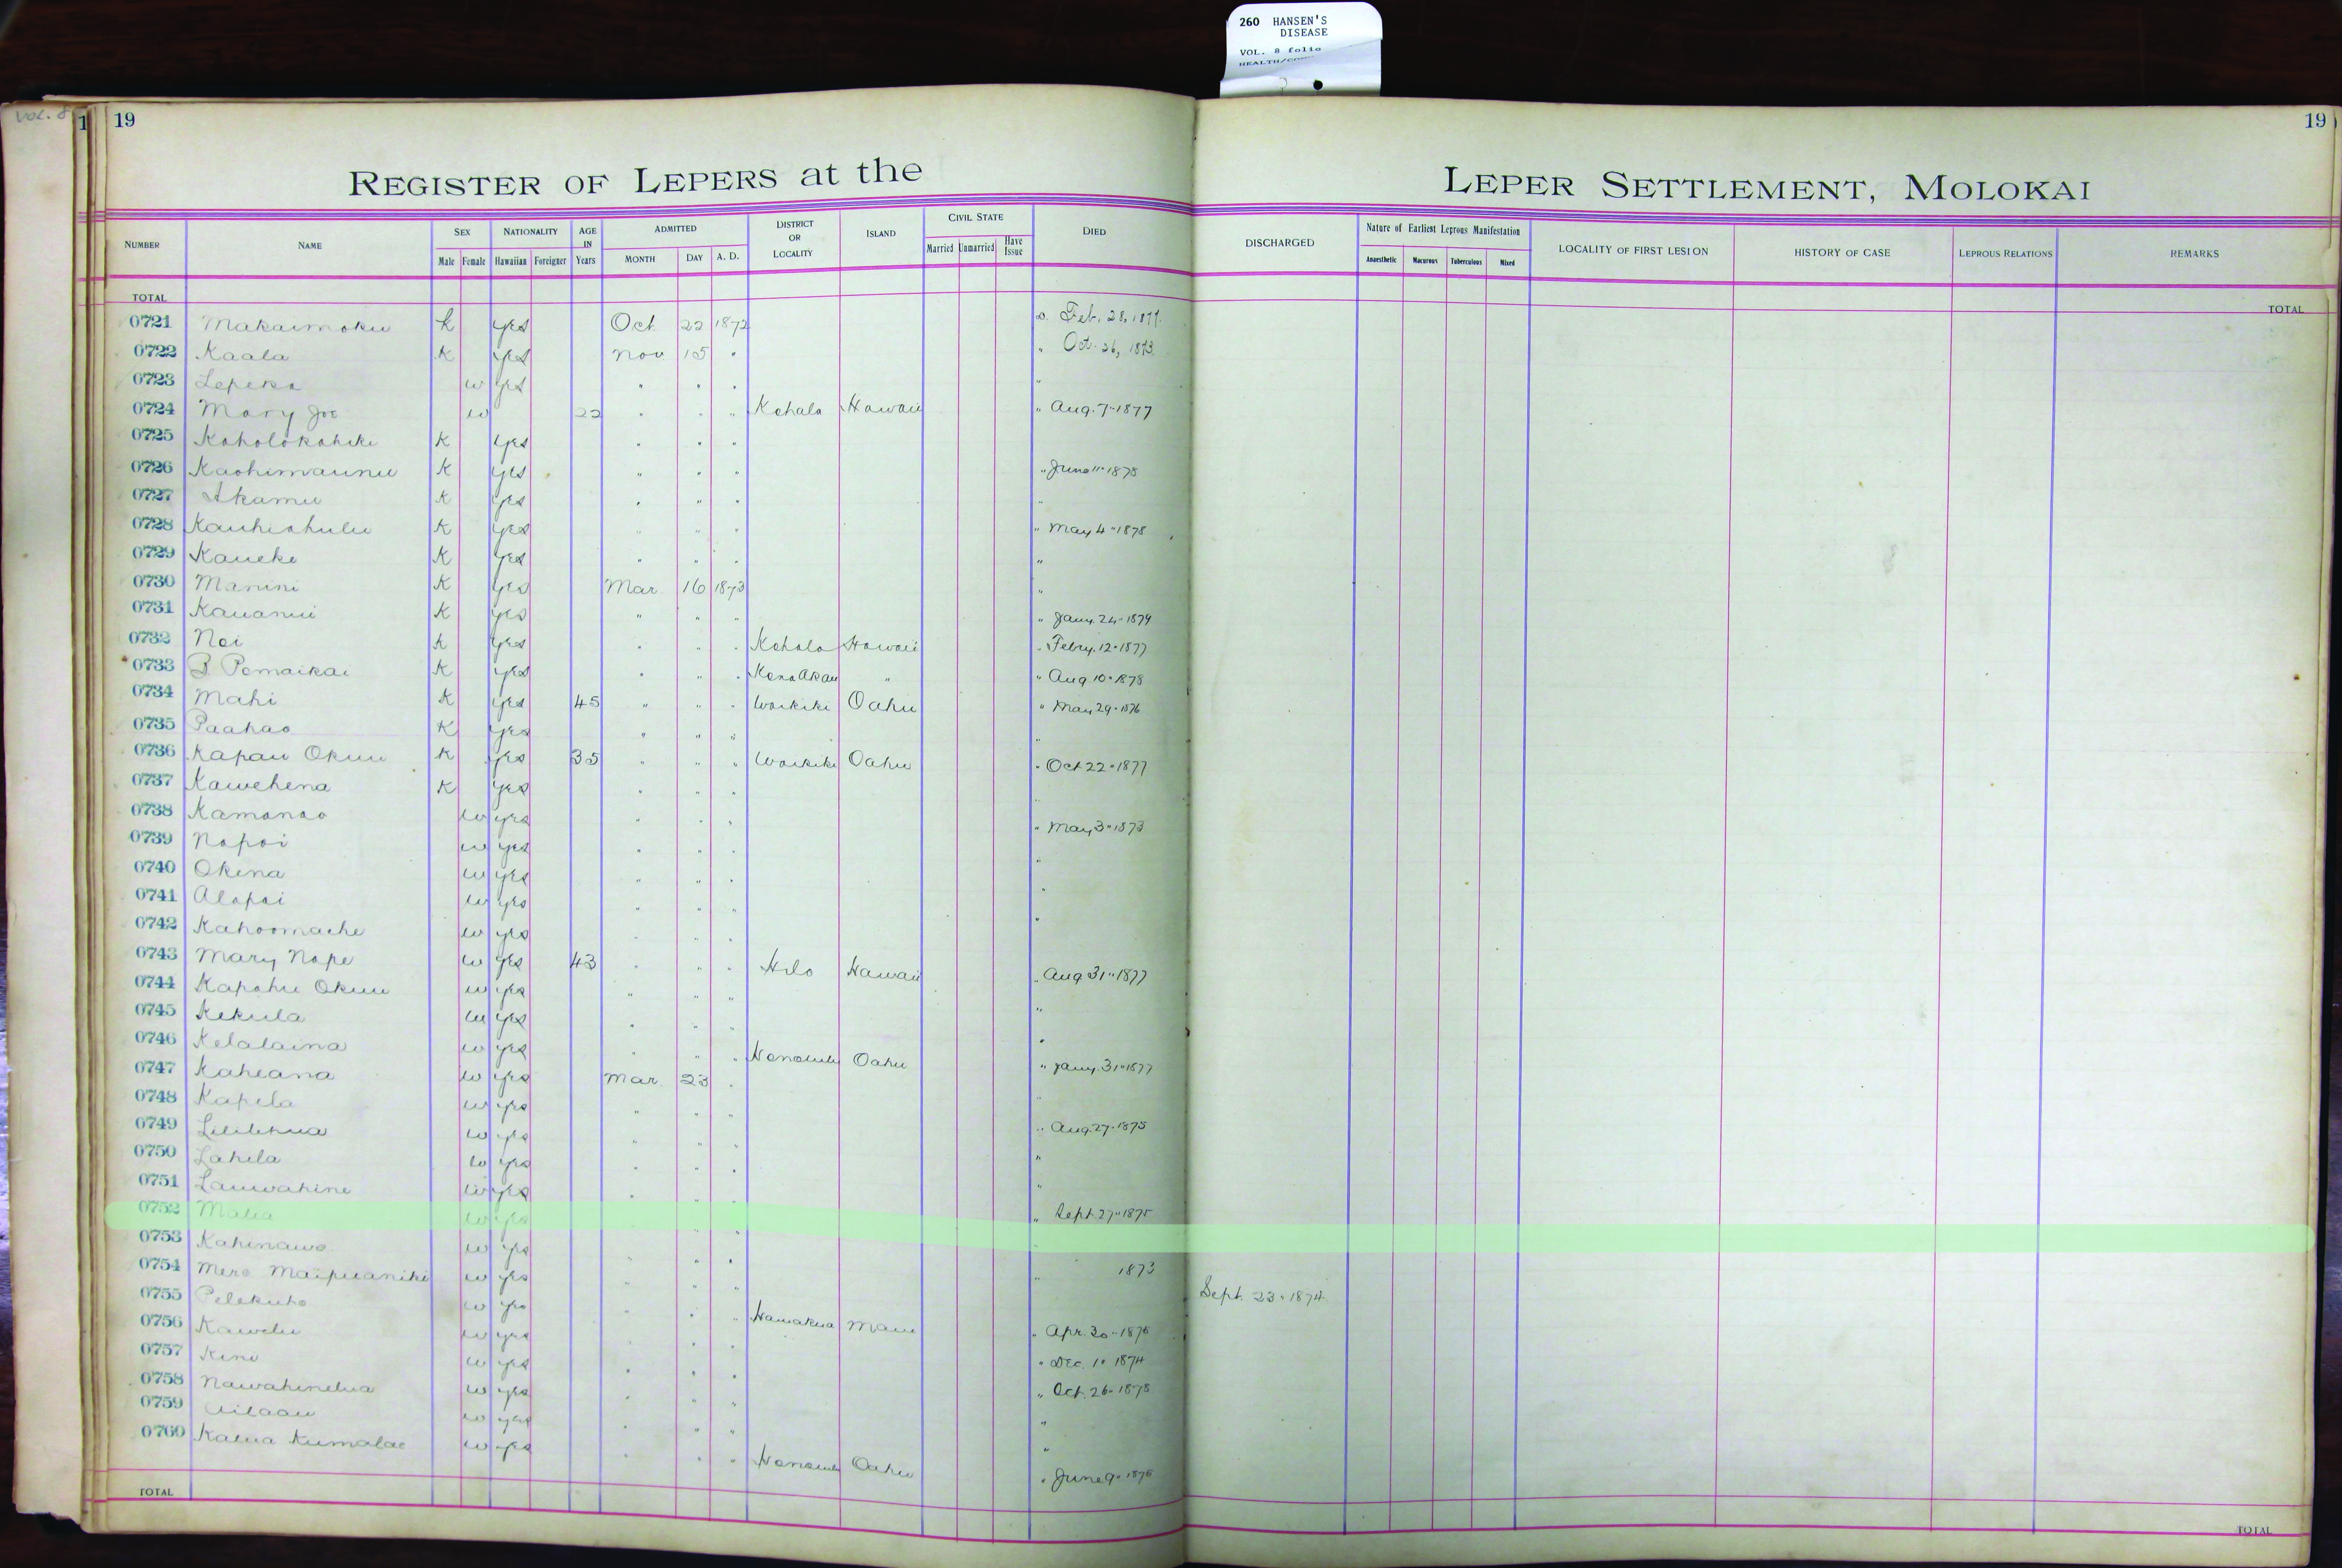 260 HANSEN'S
DISEASE
VOL. 8 folio
VOL. 8
1 19 19
REGISTER OF LEPERS at the LEPER SETTLEMENT, MOLOKAI
NUMBER NAME SEX Male Female NATIONALITY Hawaiian Foreigner AGE IN Years ADMITTED MONTH DAY A. D. DISTRICT OR LOCALITY ISLAND CIVIL STATE Married Unmarried Have Issue DIED DISCHARGED Nature of Earliest Leprous Manifestation Anaesthetic Macurous Tuberculous Mixed LOCALITY OF FIRST LESION HISTORY OF CASE LEPROUS RELATIONS REMARKS
TOTAL TOTAL
0721 Makaimoku K yes Oct 22 1872 Feb. 28, 1877.
0722 Kaala K yes Nov 15 " " Oct. 26, 1873.
0723 Lepeka w yes " " " "
0724 Mary Joe w 22 " " " Kohala Hawaii " Aug. 7" 1877
0725 Koholokahiki K yes " " "
0726 Kaohimaunu K yes " " " " June 11" 1878
0727 Akamu K yes " " " "
0728 Kauhiahulu K yes " " " " May 4" 1878
0729 Kaueke K yes " " " "
0730 Manini K yes Mar 16 1873 "
0731 Kauanui K yes " " " " Jany. 24" 1879
0732 Noi K yes " " " Kohala Hawaii " Febry. 12" 1877
0733 B Pomaikai K yes " " " Kona Akau " " Aug 10" 1878
0734 Mahi K yes 45 " " " Waikiki Oahu " May 29" 1876
0735 Paahao K yes " " " "
0736 Kapau Okuu K yes 35 " " " Waikiki Oahu " Oct 22" 1877
0737 Kawehena K yes " " " "
0738 Kamanao w yes " " " " May 3" 1873
0739 Napoi w yes " " " "
0740 Okina w yes " " " "
0741 Alapai w yes " " " "
0742 Kahoomache w yes " " "
0743 Mary Nape w yes 43 " " " Hilo Hawaii " Aug 31" 1877
0744 Kapahu Okuu w yes " " " "
0745 Kekula w yes " " " "
0746 Kelalaina w yes " " " Honolulu Oahu " Jany. 31" 1877
0747 Kaheana w yes Mar. 23 " "
0748 Kapela w yes " " " " Aug. 27" 1875
0749 Lililehua w yes " " " "
0750 Lahela w yes " " " "
0751 Lauwahine w yes " " " " Sept. 27" 1875
0752 Malia w yes " " "
0753 Kahinawe w yes " " " " 1873
0754 Mere Maipuaniki w yes " " " Sept. 23" 1874
0755 Pelekuho w yes " " " Hamakua Maui " Apr. 30" 1876
0756 Kawelu w yes " " " " Dec. 1" 1874
0757 Kini w yes " " " " Oct. 26" 1878
0758 Nawahinelua w yes " " " "
0759 Ailaau w yes " " " "
0760 Kalua Kumalae w yes " " " Honolulu Oahu " June 9" 1876
TOTAL TOTAL